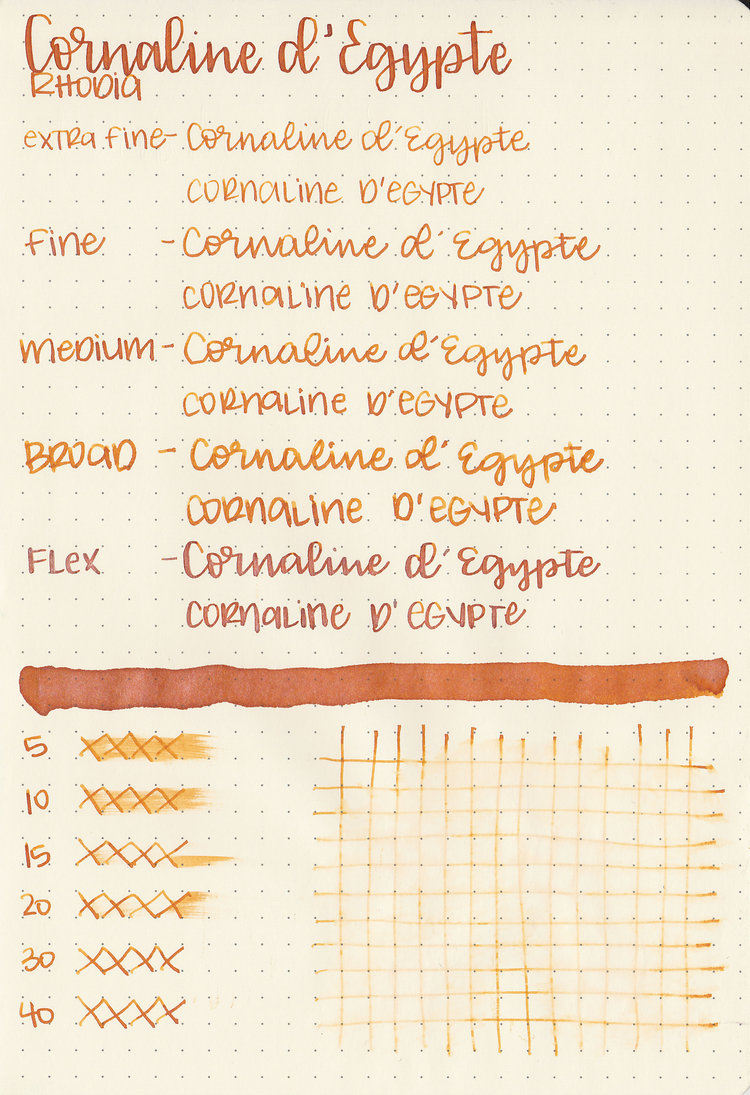 Cornaline d'Egypte
RHODIA
extra fine - Cornaline d'Egypte
CORNALINE D'EGYPTE
fine - Cornaline d'Egypte
CORNALINE D'EGYPTE
medium - Cornaline d'Egypte
CORNALINE D'EGYPTE
BROAD - Cornaline d'Egypte
CORNALINE D'EGYPTE
FLEX - Cornaline d'Egypte
CORNALINE D'EGYPTE
5 XXXX
10 XXXX
15 XXXX
20 XXXX
30 XXXX
40 XXXX